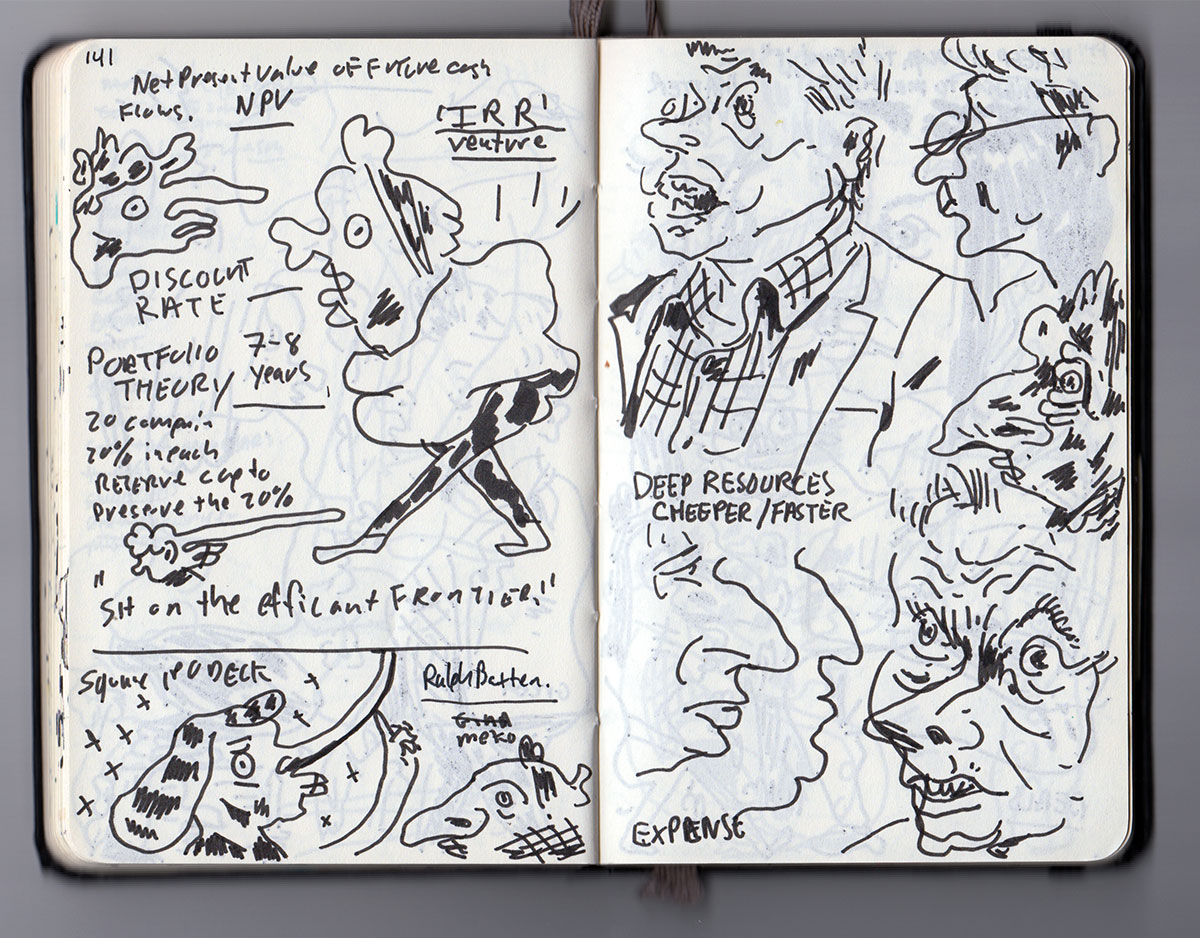 141
Net Present Value of Future cash
Flows. NPV
'IRR'
venture
DISCOUNT
RATE
7-8
years
PORTFOLIO
THEORY
20 compni
20% in each
RESERVE cap to
preserve the 20%
"Sit on the efficant FRONTIER."
Square IPO DECK
Ralph Batten.
meko
DEEP RESOURCES
CHEEPER/FASTER
EXPENSE